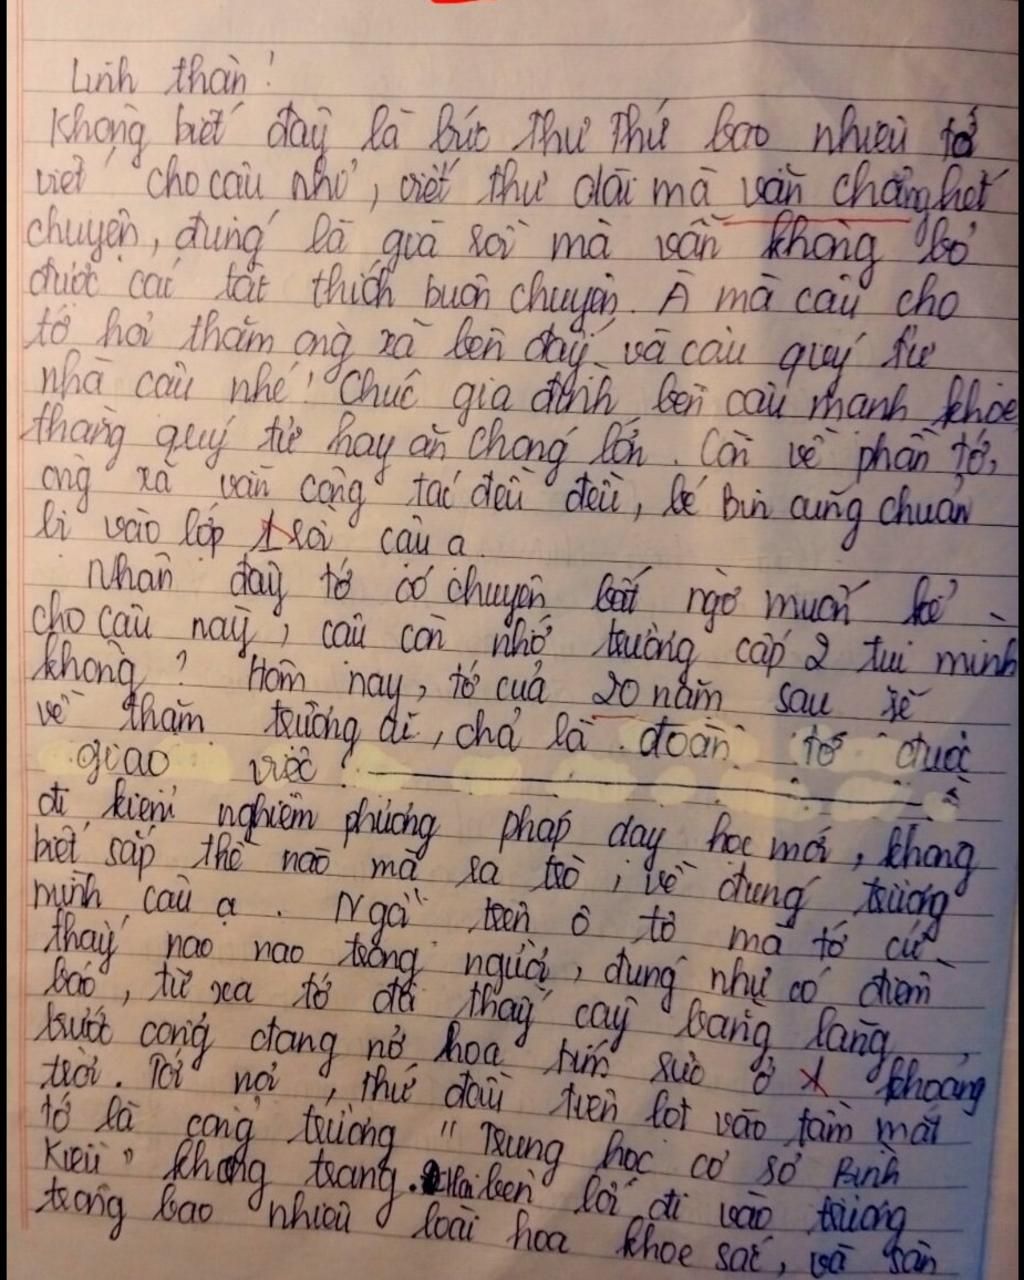 Linh thân!
Không biết đây là bức thư thứ bao nhiêu tớ
viết cho cậu nhỉ, viết thư dài mà vẫn chẳng hết
chuyện, đúng là già rồi mà vẫn không bỏ
được cái tật thích buôn chuyện. À mà cậu cho
tớ hỏi thăm ông xã bên đấy và cậu quý tử
nhà cậu nhé! Chúc gia đình bên cậu mạnh khỏe
thằng quý tử hay ăn chóng lớn. Còn về phần tớ,
ông xã vẫn công tác đều đều, bé Bin cũng chuẩn
bị vào lớp 1 rồi cậu ạ.
Nhân đây tớ có chuyện bất ngờ muốn kể
cho cậu này, cậu còn nhớ trường cấp 2 tụi mình
không? Hôm nay, tớ của 20 năm sau sẽ
về thăm trường đấy, chả là đoàn tớ được
giao việc
đi kiểm nghiệm phương pháp dạy học mới, không
biết sắp thế nào mà ra trò, về đúng trường
mình cậu ạ. Ngồi trên ô tô mà tớ cứ
thấy nao nao trong người, đúng như có điềm
báo, từ xa tớ đã thấy cây bằng lăng
trước cổng đang nở hoa tím rực ở 1 khoảng
trời. Tới nơi, thứ đầu tiên lọt vào tầm mắt
tớ là cổng trường "Trung học cơ sở Bình
Kiều" khang trang. Hai bên lối đi vào trường
trồng bao nhiêu loài hoa khoe sắc, và sân